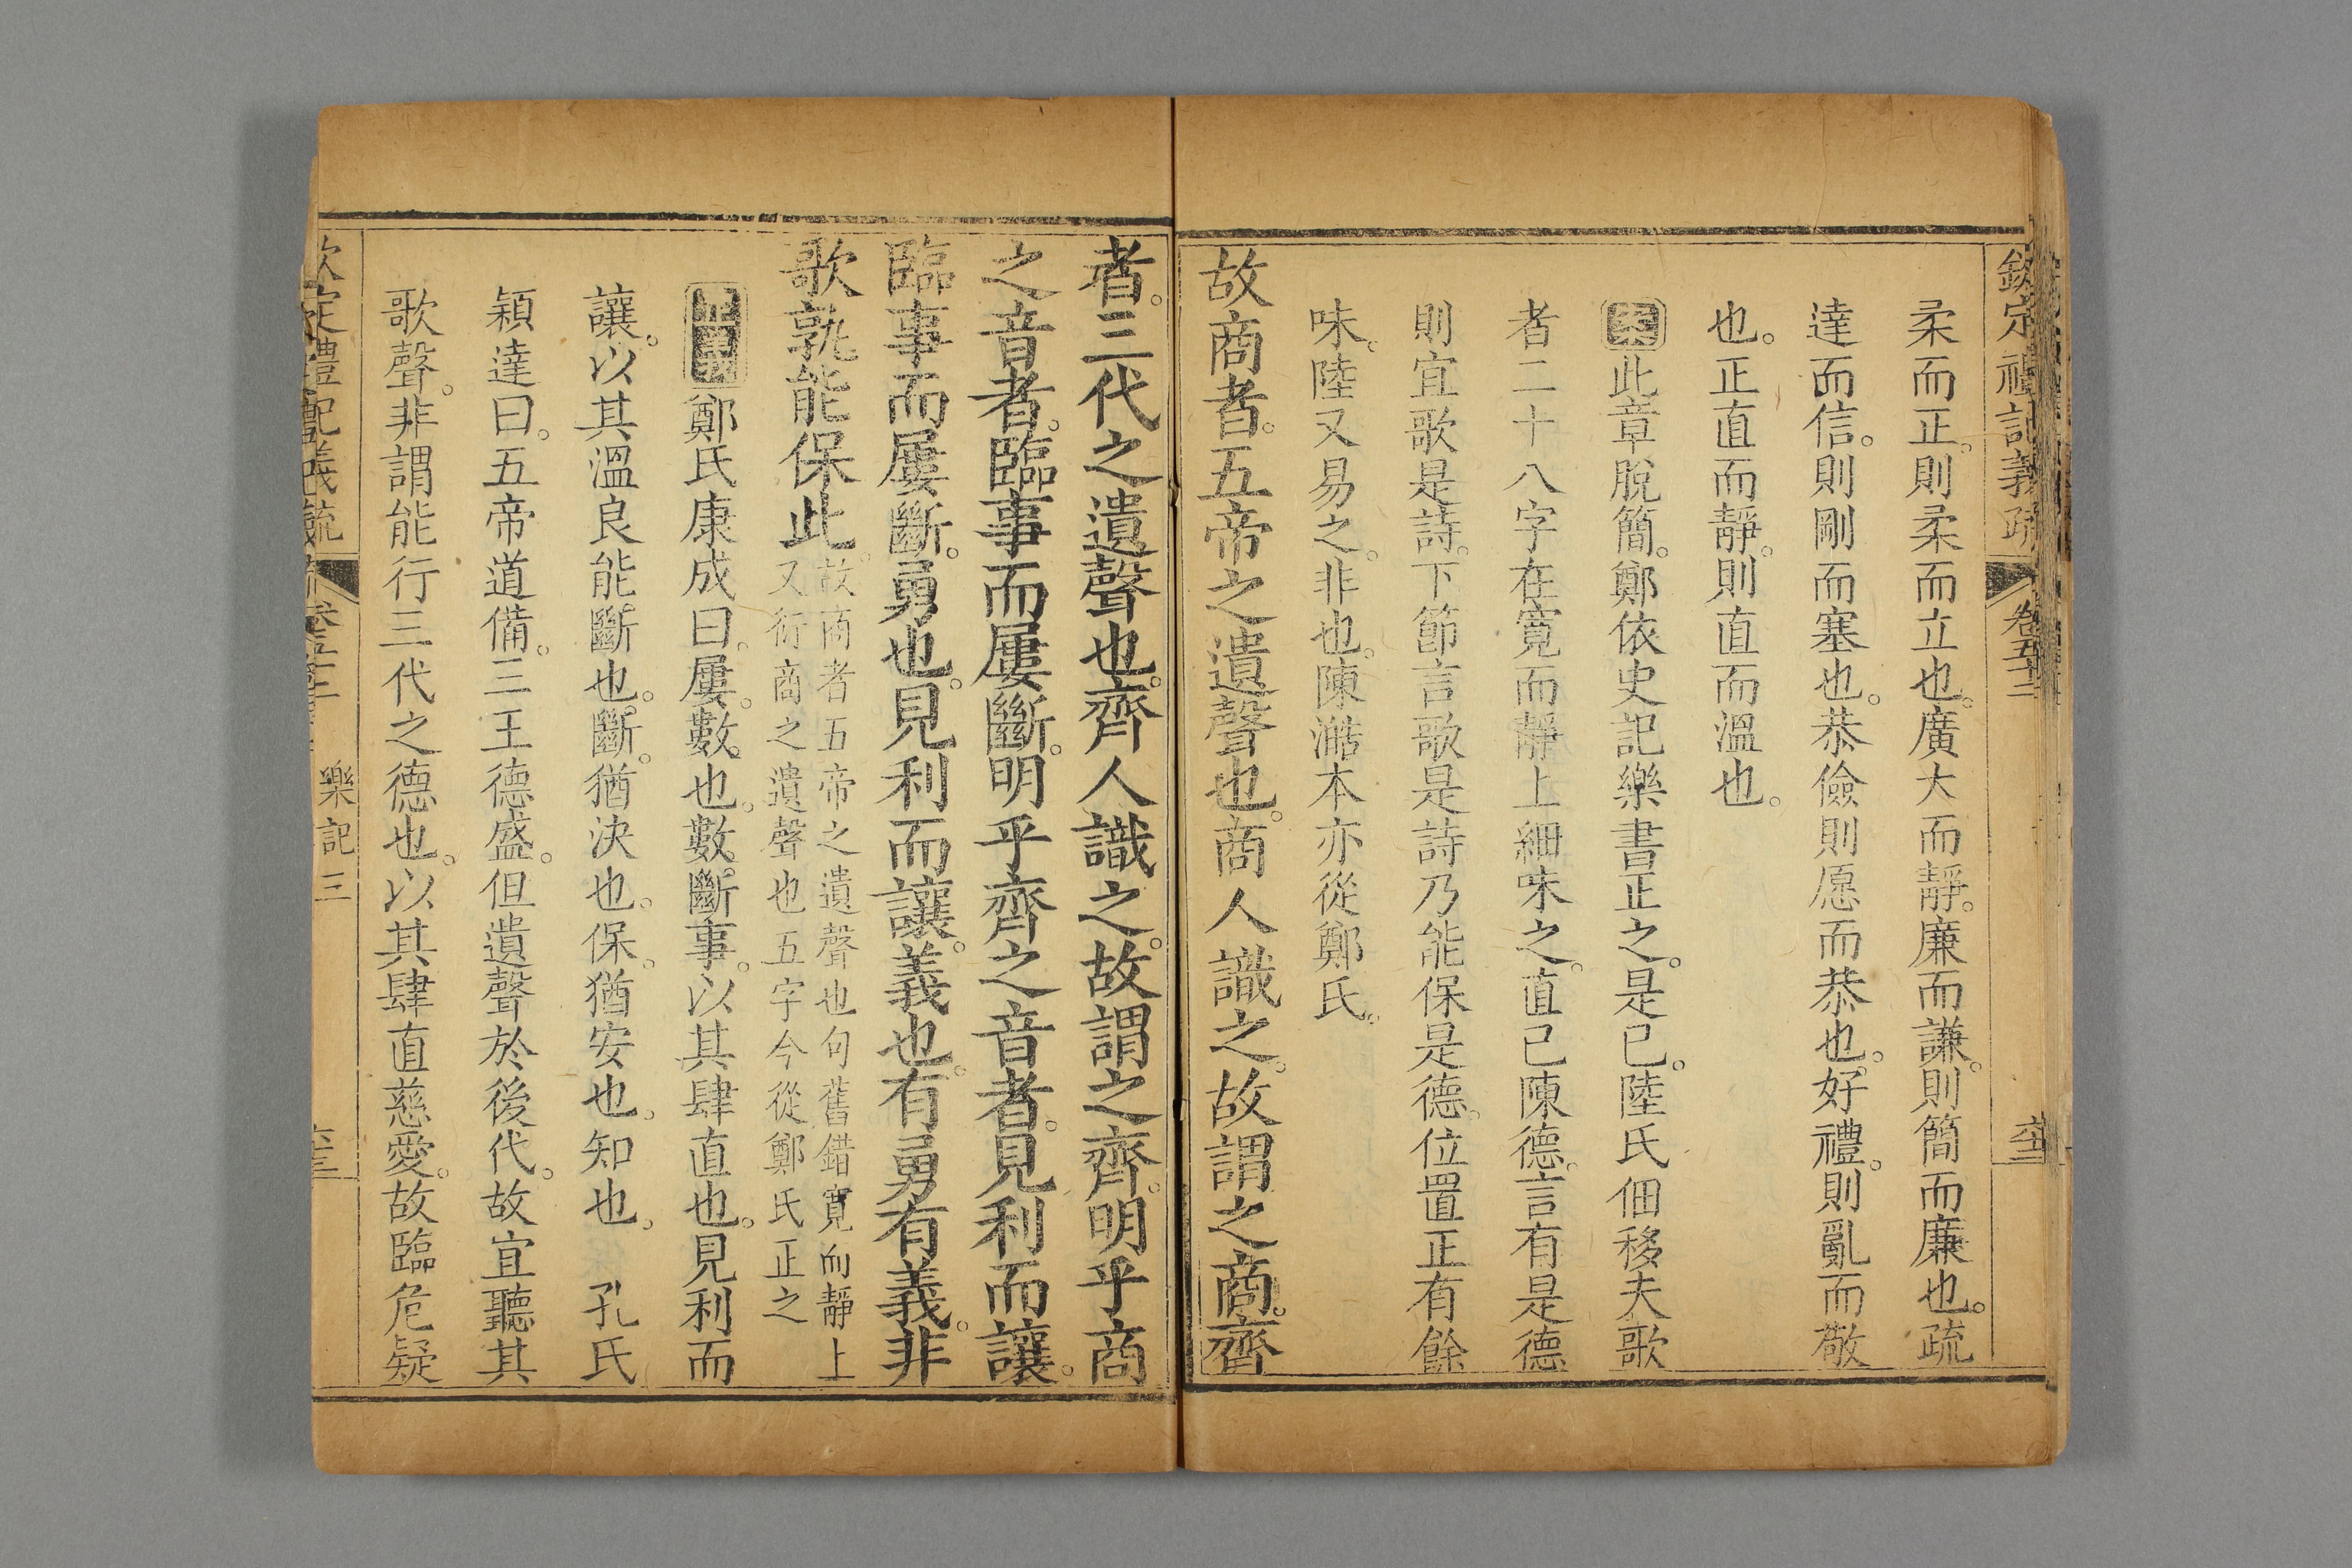 欽定禮記義疏 卷五十二
柔而正。則柔而立也。廣大而靜。廉而謙。則簡而廉也。疏
達而信。則剛而塞也。恭儉則愿而恭也。好禮。則亂而敬
也。正直而靜。則直而溫也。
此章脫簡。鄭依史記樂書正之。是已。陸氏佃移夫歌
者二十八字在寬而靜上細味之。直己陳德。言有是德
則宜歌是詩。下節言歌是詩乃能保是德。位置正有餘
味。陸又易之。非也。陳澔本亦從鄭氏。
故商者。五帝之遺聲也。商人識之。故謂之商。齊
者。三代之遺聲也。齊人識之。故謂之齊。明乎商
之音者。臨事而屢斷。明乎齊之音者。見利而讓。
臨事而屢斷。勇也。見利而讓。義也。有勇有義。非
歌孰能保此。故商者五帝之遺聲也句舊錯寬而靜上
又衍商之遺聲也五字今從鄭氏正之
鄭氏康成曰。屢。數也。數。斷事。以其肆直也。見利而
讓。以其溫良能斷也。斷。猶決也。保。猶安也。知也。 孔氏
穎達曰。五帝道備。三王德盛。但遺聲於後代。故宜聽其
歌聲。非謂能行三代之德也。以其肆直慈愛。故臨危疑
欽定禮記義疏 卷五十二 樂記三